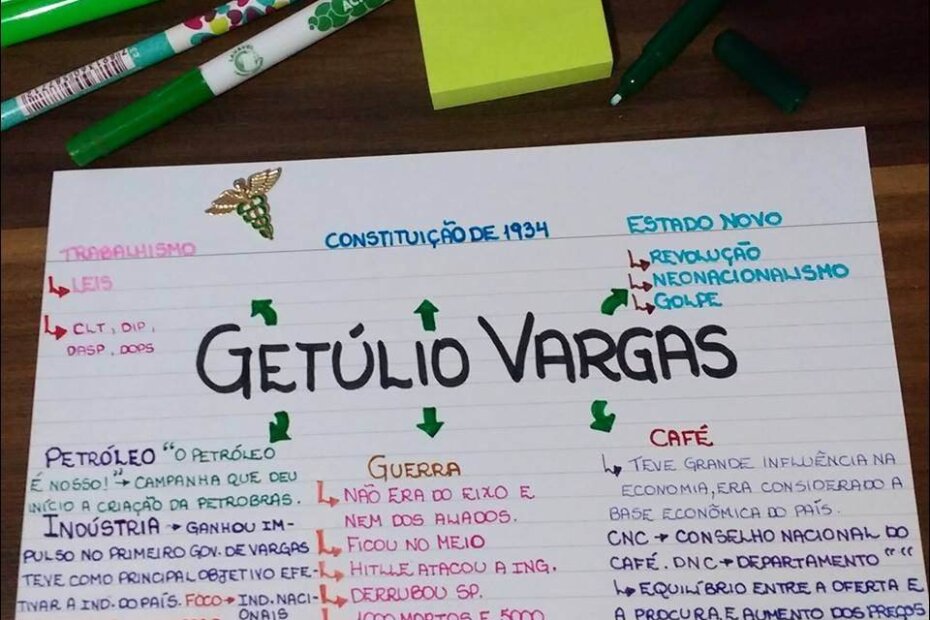 TRABALHISMO
LEIS
CLT, DIP,
DASP, DOPS
CONSTITUIÇÃO DE 1934
ESTADO NOVO
REVOLUÇÃO
NEONACIONALISMO
GOLPE
GETÚLIO VARGAS
PETRÓLEO "O PETRÓLEO
É NOSSO!" → CAMPANHA QUE DEU
INÍCIO A CRIAÇÃO DA PETROBRAS.
INDÚSTRIA → GANHOU IM-
PULSO NO PRIMEIRO GOV. DE VARGAS
TEVE COMO PRINCIPAL OBJETIVO EFE-
TIVAR A IND. DO PAÍS. FOCO → IND. NACI-
ONAIS
GUERRA
NÃO ERA DO EIXO E
NEM DOS ALIADOS.
FICOU NO MEIO
HITLLE ATACOU A ING.
DERRUBOU SP.
1000 MORTOS E 5000
CAFÉ
TEVE GRANDE INFLUÊNCIA NA
ECONOMIA, ERA CONSIDERADO A
BASE ECONÔMICA DO PAÍS.
CNC → CONSELHO NACIONAL DO
CAFÉ. DNC → DEPARTAMENTO " "
EQUILÍBRIO ENTRE A OFERTA E
A PROCURA E AUMENTO DOS PREÇOS